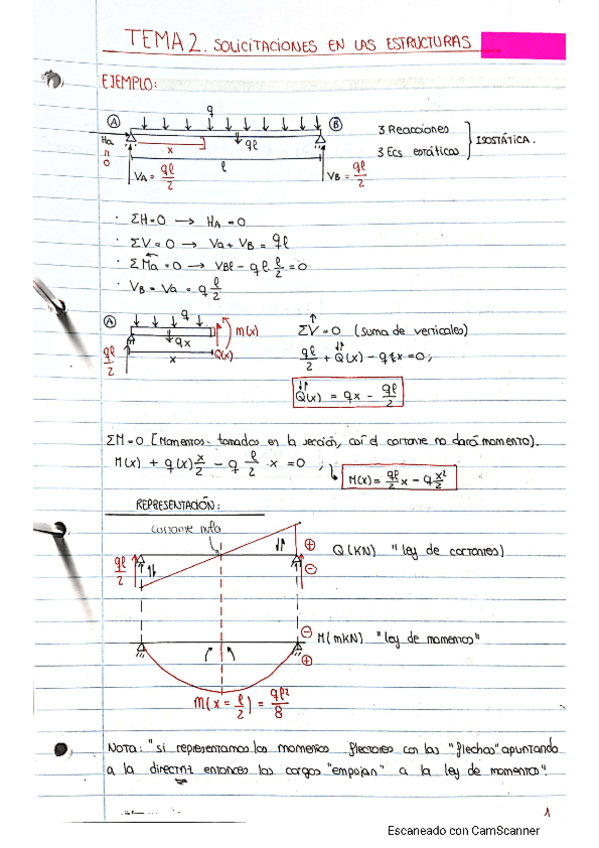 TEMA 2. SOLICITACIONES EN LAS ESTRUCTURAS
EJEMPLO:
q
A B
Ha = 0
x
qℓ
ℓ
VA = qℓ/2
VB = qℓ/2
3 Reacciones
3 Ecs estáticas
ISOSTÁTICA.
· ΣH=0 → HA = 0
· ΣV = 0 → Va + VB = qℓ
· ΣMa = 0 → VBℓ - qℓ·ℓ/2 = 0
· VB = Va = q ℓ/2
A q
qx
x
qℓ/2
M(x)
Q(x)
ΣV = 0 (suma de verticales)
qℓ/2 + Q(x) - qx = 0;
Q(x) = qx - qℓ/2
ΣM=0 [Momentos tomados en la sección, así el cortante no dará momento).
M(x) + q(x) x/2 - q ℓ/2 · x = 0 ;
M(x) = qℓ/2 x - q x²/2
REPRESENTACIÓN:
cortante nulo
qℓ/2
+
-
Q(KN) "ley de cortantes)
-
+
M(mKN) "ley de momentos"
M(x = ℓ/2) = qℓ²/8
NOTA: "si representamos los momentos flectores con las "flechas" apuntando
a la directriz entonces las cargas "empujan" a la ley de momentos".
1
Escaneado con CamScanner